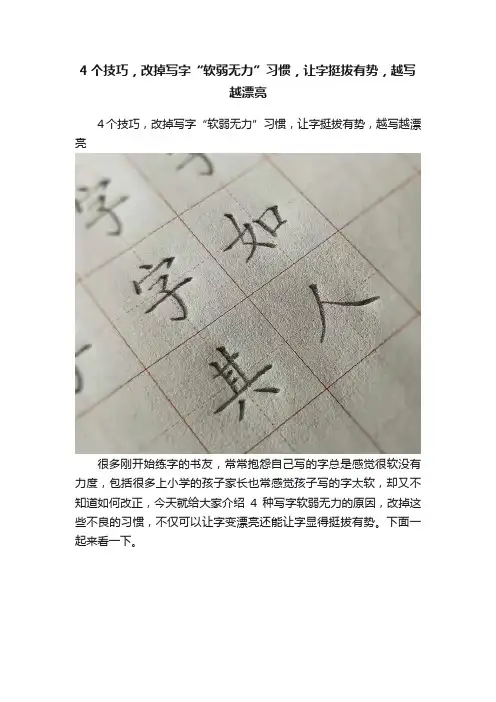 4 个技巧，改掉写字“软弱无力”习惯，让字挺拔有势，越写
越漂亮
4个技巧，改掉写字“软弱无力”习惯，让字挺拔有势，越写越漂
亮
字
字如
其人
很多刚开始练字的书友，常常抱怨自己写的字总是感觉很软没有
力度，包括很多上小学的孩子家长也常感觉孩子写的字太软，却又不
知道如何改正，今天就给大家介绍 4 种写字软弱无力的原因，改掉这
些不良的习惯，不仅可以让字变漂亮还能让字显得挺拔有势。下面一
起来看一下。